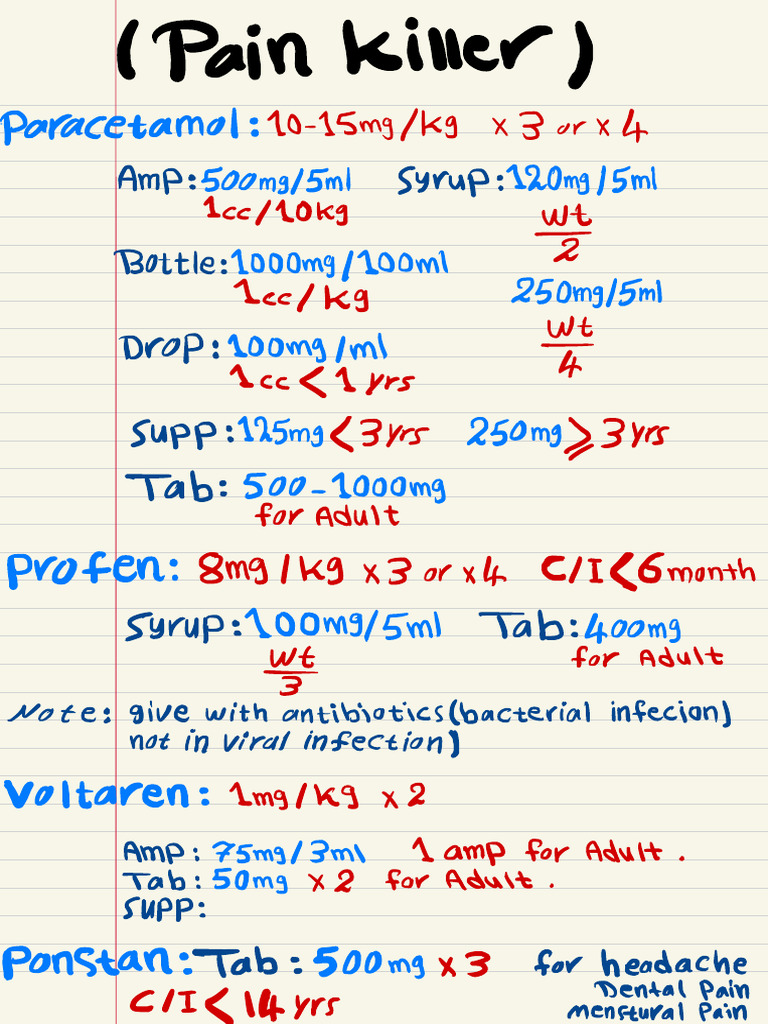 (Pain Killer)
Paracetamol: 10-15mg/kg x 3 or x 4
Amp: 500mg/5ml Syrup: 120mg/5ml
1cc/10kg wt/2
Bottle: 1000mg/100ml
1cc/kg 250mg/5ml
Drop: 100mg/ml wt/4
1cc < 1 yrs
Supp: 125mg < 3 yrs 250mg ⩾ 3 yrs
Tab: 500-1000mg
for Adult
Profen: 8mg/kg x 3 or x 4 C/I < 6 month
Syrup: 100mg/5ml Tab: 400mg
wt/3 for Adult
Note: give with antibiotics (bacterial infecion)
not in viral infection)
Voltaren: 1mg/kg x 2
Amp: 75mg/3ml 1 amp for Adult.
Tab: 50mg x 2 for Adult.
Supp:
Ponstan: Tab: 500mg x 3 for headache
Dental Pain
C/I < 14 yrs menstural Pain